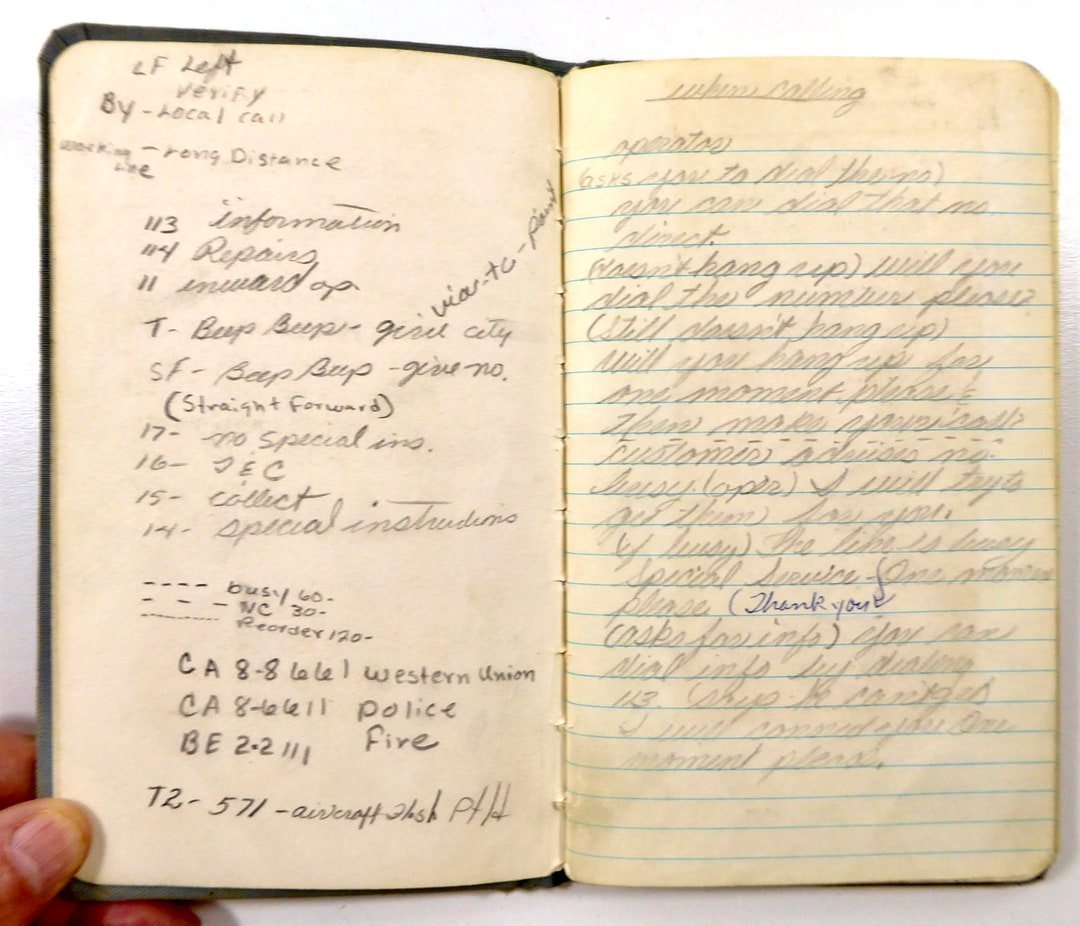 LF Left
Verify
BY - Local call
Working - Long Distance
Line
113 information
114 Repairs
11 inward op
T - Beep Beep - give city
point
SF - Beep Beep - give no.
(Straight Forward)
17 - no special ins.
16 - T & C
15 - collect
14 - special instructions
---- busy 60-
- - - NC 30-
Reorder 120-
CA 8-8661 Western Union
CA 8-6611 Police
BE 2-2111 Fire
T2 - 571 - aircraft
when calling
operator
(asks you to dial the no)
you can dial that no
direct.
(doesn't hang up) will you
dial the number please?
(still doesn't hang up)
will you hang up for
one moment please
then make your call
customer advises no.
busy (oper) I will try to
get them for you.
(if busy) the line is busy
Special Service - One moment
please (Thank you)
(asks for info) you can
dial info by dialing
113.
I will connect you One
moment please.